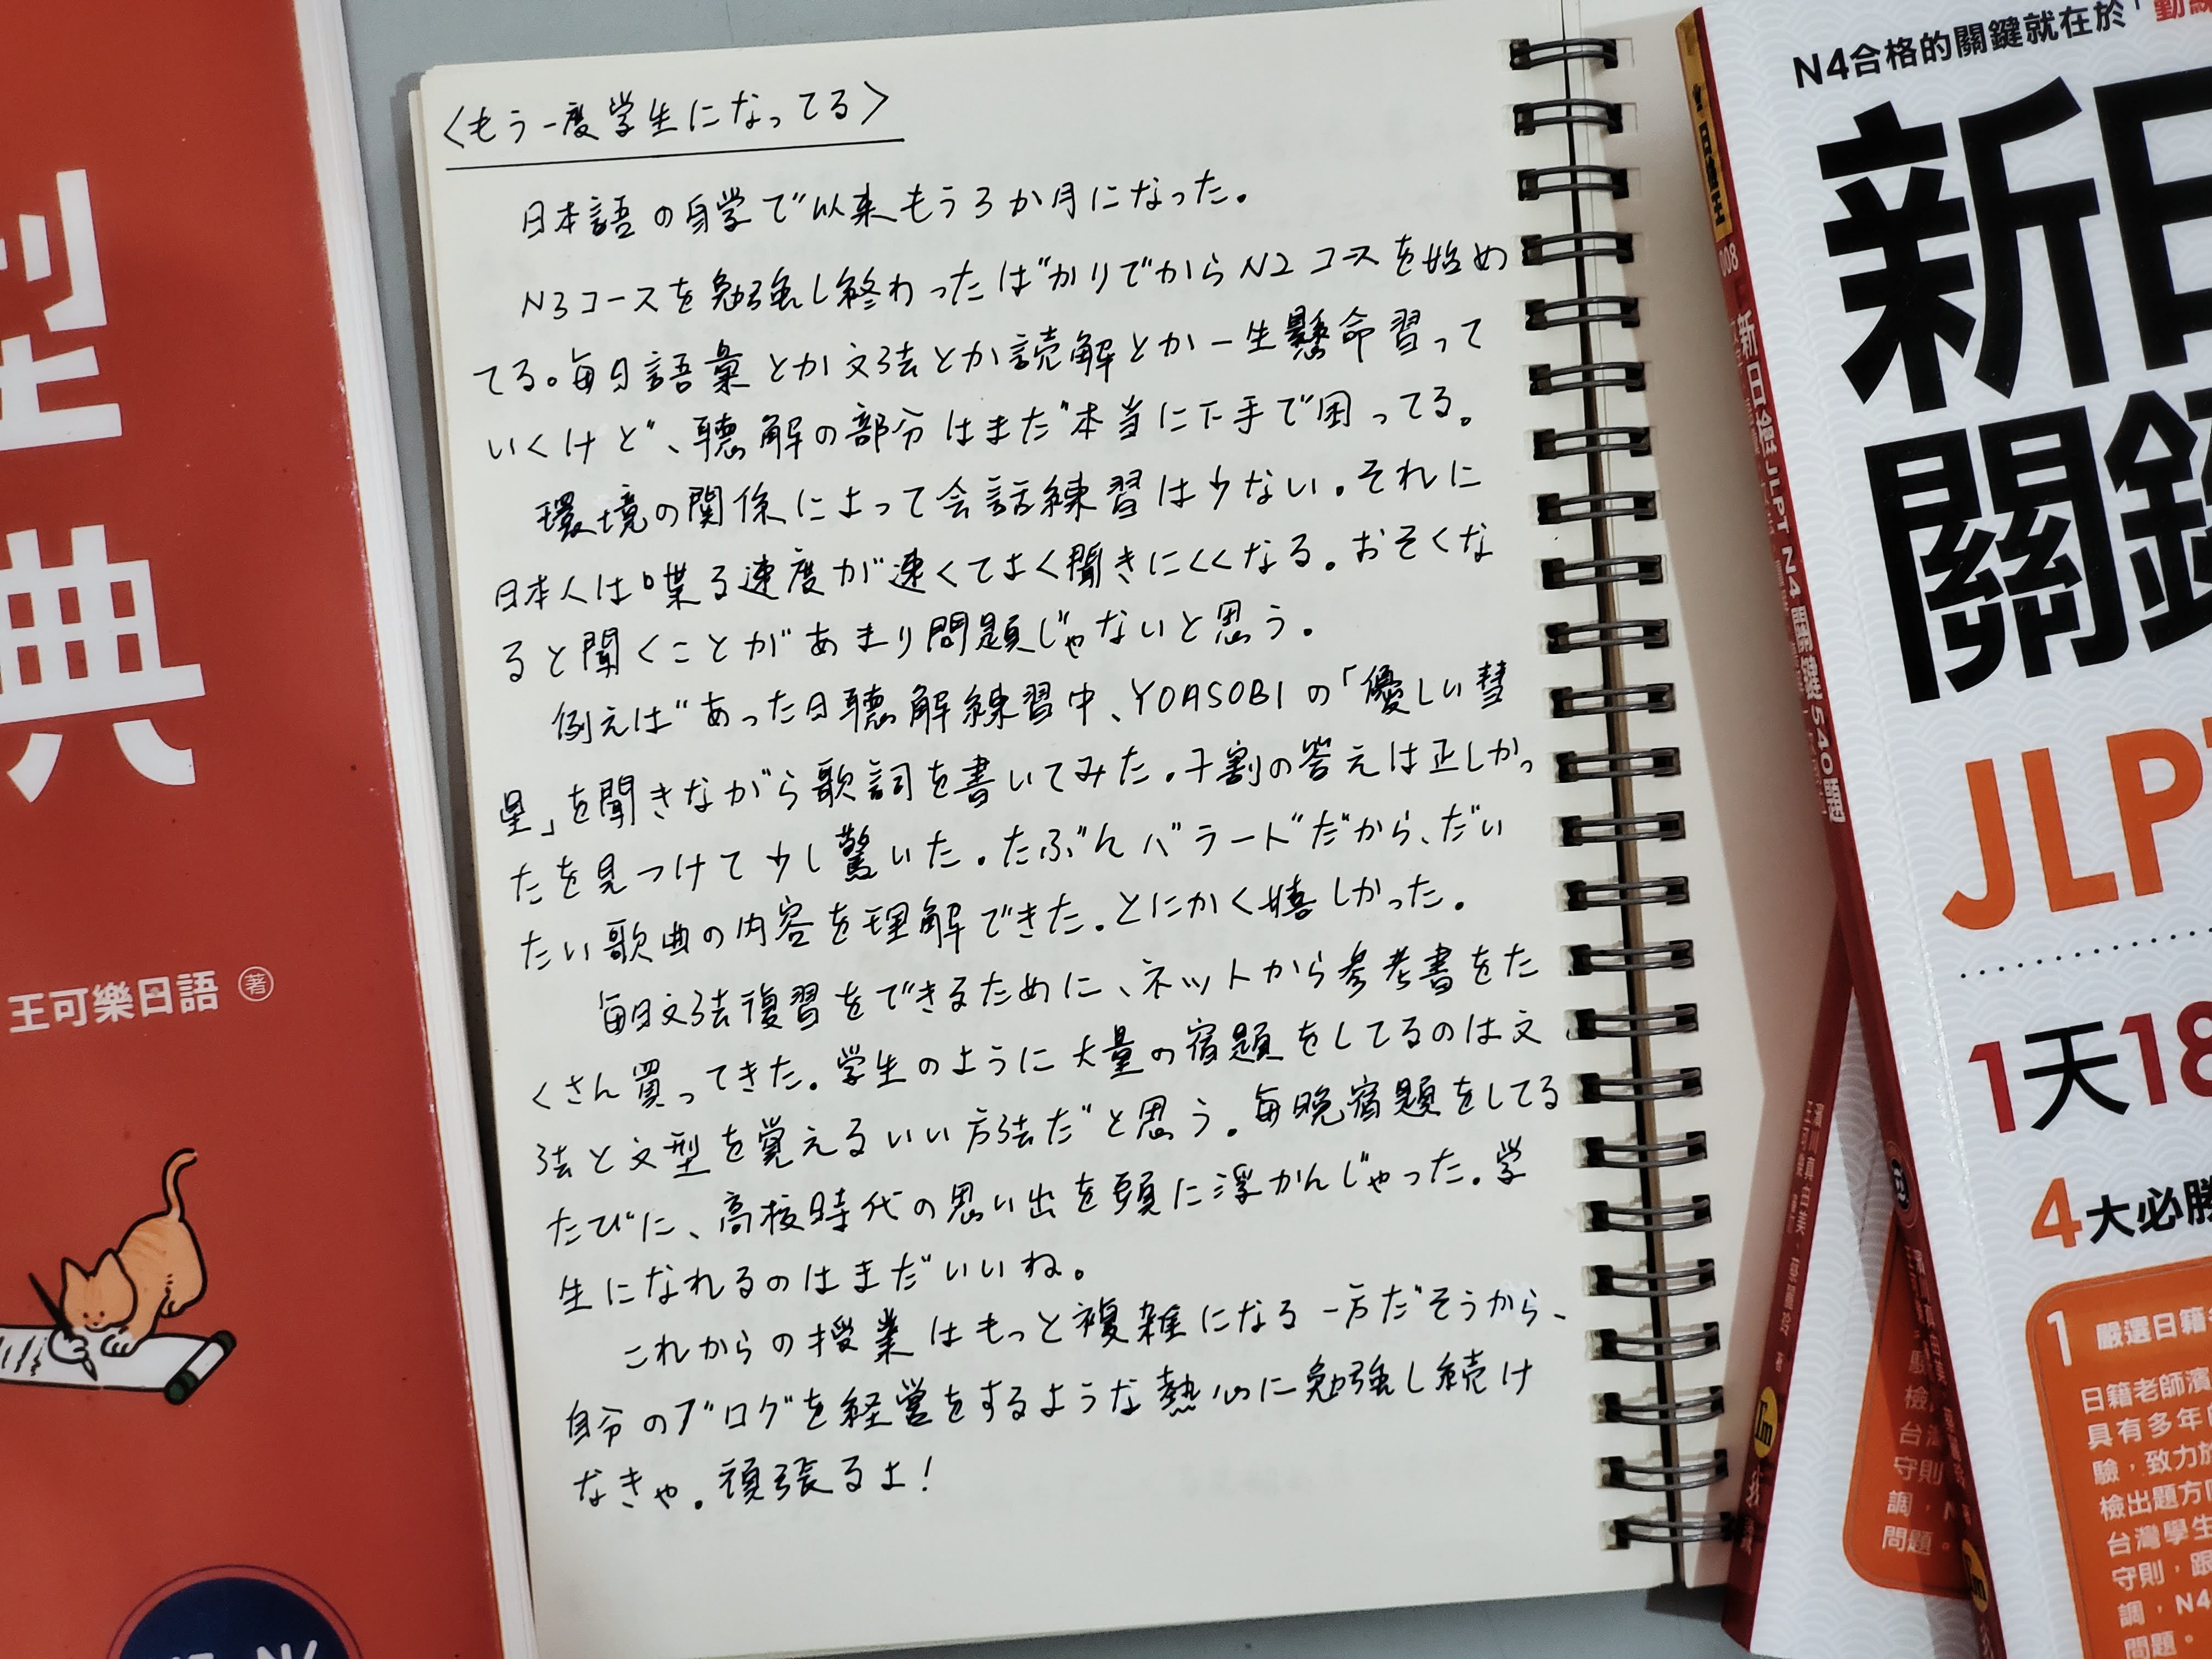 〈もう一度学生になってる〉
日本語の自学で以来もう3か月になった。
N3コースを勉強し終わったばかりでからN2コースを始め
てる。毎日語彙とか文法とか読解とか一生懸命習って
いくけど、聴解の部分はまだ本当に下手で困ってる。
環境の関係によって会話練習は少ない。それに
日本人は喋る速度が速くてよく聞きにくくなる。おそくな
ると聞くことがあまり問題じゃないと思う。
例えばあった日聴解練習中、YOASOBIの「優しい彗
星」を聞きながら歌詞を書いてみた。千割の答えは正しかっ
たを見つけて少し驚いた。たぶんバラードだから、だい
たい歌曲の内容を理解できた。とにかく嬉しかった。
毎日文法復習をできるために、ネットから参考書をた
くさん買ってきた。学生のように大量の宿題をしてるのは文
法と文型を覚えるいい方法だと思う。毎晩宿題をしてる
たびに、高校時代の思い出を頭に浮かんじゃった。学
生になれるのはまだいいね。
これからの授業はもっと複雑になる一方だそうから、
自分のブログを経営をするような熱心に勉強し続け
なきゃ。頑張るよ！
典
王可樂日語 著
N4合格的關鍵就在於「勤練
新日
關鍵
JLPT
1天18
4大必勝
1 嚴選日籍
日籍老師濱
具有多年
驗，致力於
檢出題方向
台灣學生
守則，跟
調，N4
問題。
008
新日檢 JLPT N4 關鍵540題
檢
台灣
守則
調，N
問題。